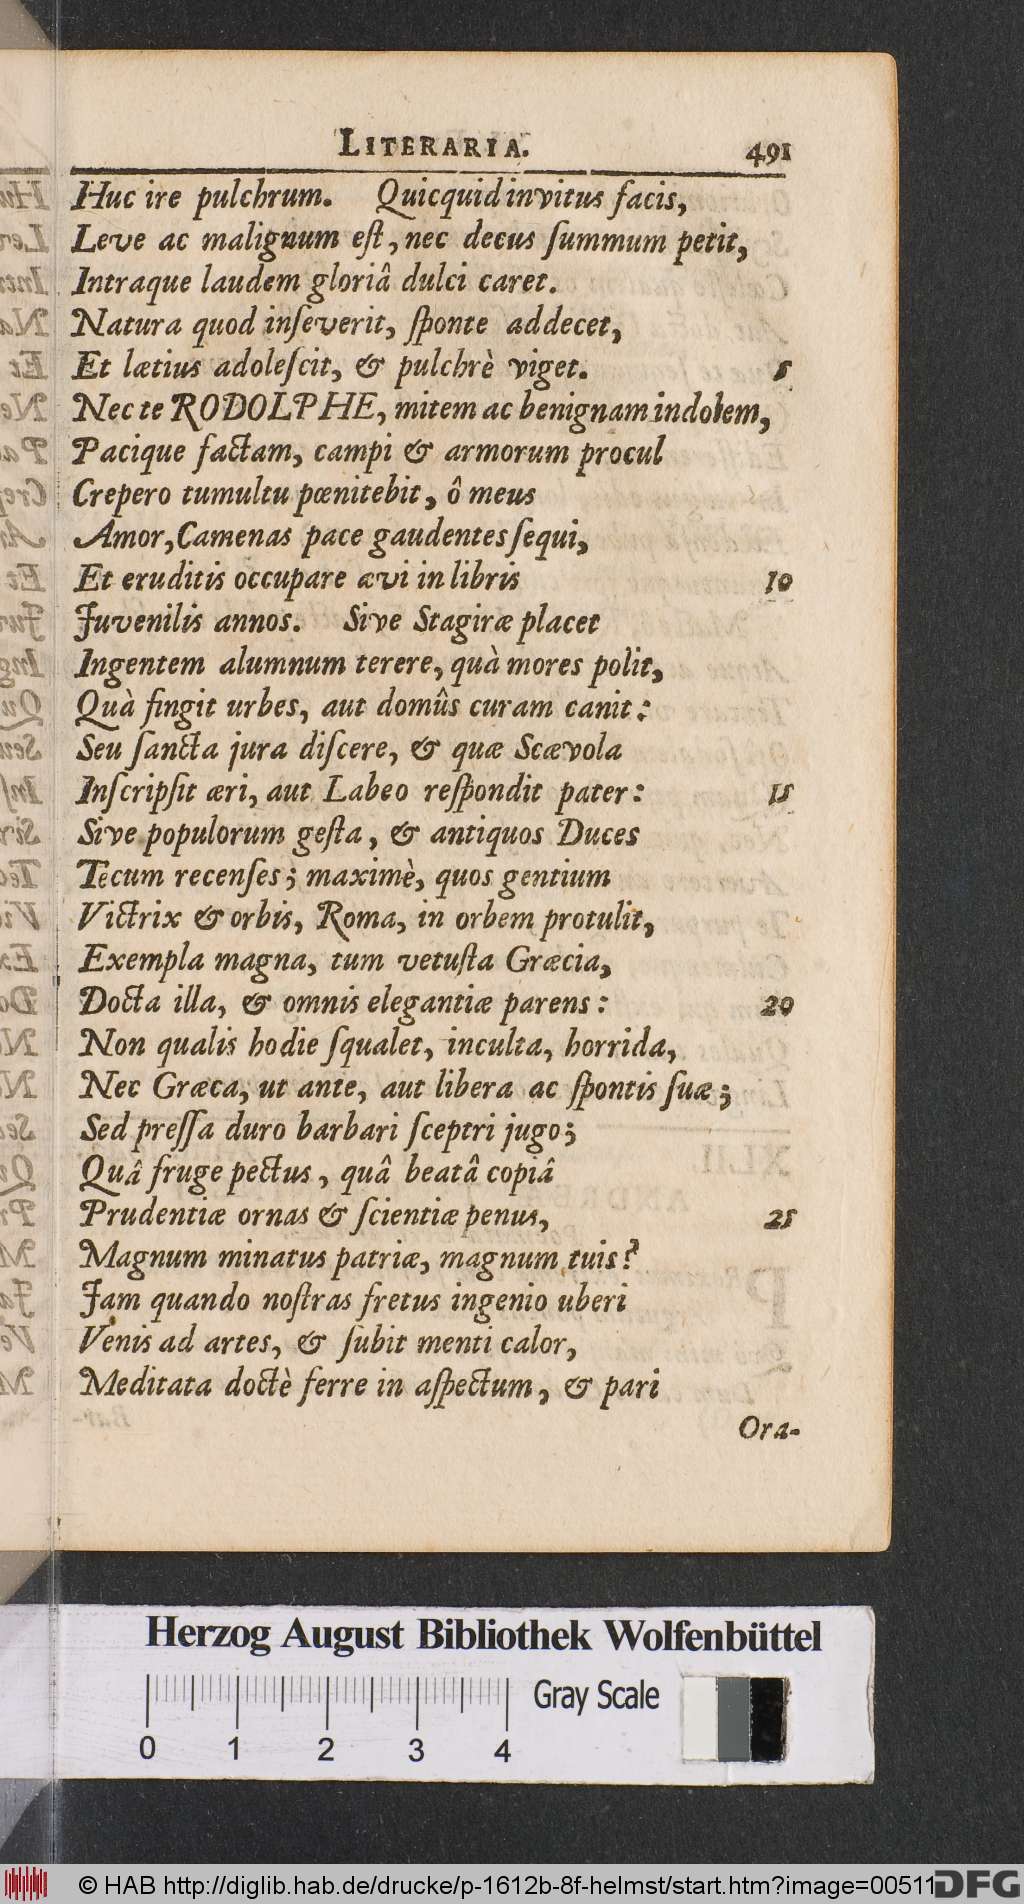 LITERARIA. 491
Huc ire pulchrum. Quicquid invitus facis,
Leve ac malignum eſt, nec decus ſummum petit,
Intraque laudem gloriâ dulci caret.
Natura quod inſeverit, ſponte addecet,
Et lætius adoleſcit, & pulchrè viget. 5
Nec te RODOLPHE, mitem ac benignam indolem,
Pacique factam, campi & armorum procul
Crepero tumultu pœnitebit, ô meus
Amor, Camenas pace gaudentes ſequi,
Et eruditis occupare ævi in libris 10
Juvenilis annos. Sive Stagiræ placet
Ingentem alumnum terere, quà mores polit,
Quà fingit urbes, aut domûs curam canit:
Seu ſancta jura diſcere, & quæ Scævola
Inſcripſit æri, aut Labeo reſpondit pater: 15
Sive populorum geſta, & antiquos Duces
Tecum recenſes; maximè, quos gentium
Victrix & orbis, Roma, in orbem protulit,
Exempla magna, tum vetuſta Græcia,
Docta illa, & omnis elegantiæ parens: 20
Non qualis hodie ſqualet, inculta, horrida,
Nec Græca, ut ante, aut libera ac ſpontis ſuæ;
Sed preſſa duro barbari ſceptri jugo;
Quâ fruge pectus, quâ beatâ copiâ
Prudentiæ ornas & ſcientiæ penus, 25
Magnum minatus patriæ, magnum tuis?
Jam quando noſtras fretus ingenio uberi
Venis ad artes, & ſubit menti calor,
Meditata doctè ferre in aſpectum, & pari
Ora-
Herzog August Bibliothek Wolfenbüttel
Gray Scale
0 1 2 3 4
© HAB http://diglib.hab.de/drucke/p-1612b-8f-helmst/start.htm?image=00511
DFG